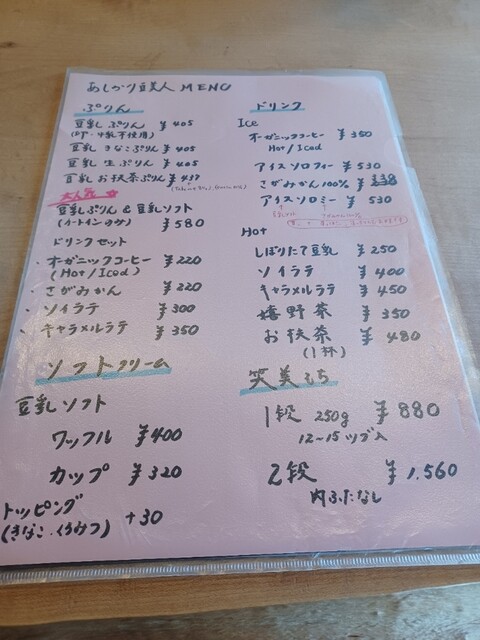 あしかり豆美人 MENU
ぷりん
豆乳 ぷりん ¥405
(卵・牛乳不使用)
豆乳 きなこぷりん ¥405
豆乳 生ぷりん ¥405
豆乳 お抹茶ぷりん ¥437
大人気
豆乳ぷりん & 豆乳ソフト
(イートインのみ) ¥580
ドリンクセット
・オーガニックコーヒー ¥220
(Hot/Iced)
さがみかん ¥220
・ソイラテ ¥300
・キャラメルラテ ¥350
ソフトクリーム
豆乳ソフト
ワッフル ¥400
カップ ¥320
トッピング
(きなこ・くろみつ) +30
ドリンク
Ice
オーガニックコーヒー ¥350
Hot/Iced
アイスソロフィー ¥530
さがみかん100%
アイスソロミー ¥530
Hot
しぼりたて豆乳 ¥250
ソイラテ ¥400
キャラメルラテ ¥450
嬉野茶 ¥350
お抹茶 ¥480
(1杯)
笑美もち
1段 250g ¥880
12~15ツブ入
2段 ¥1,560
内ふたなし